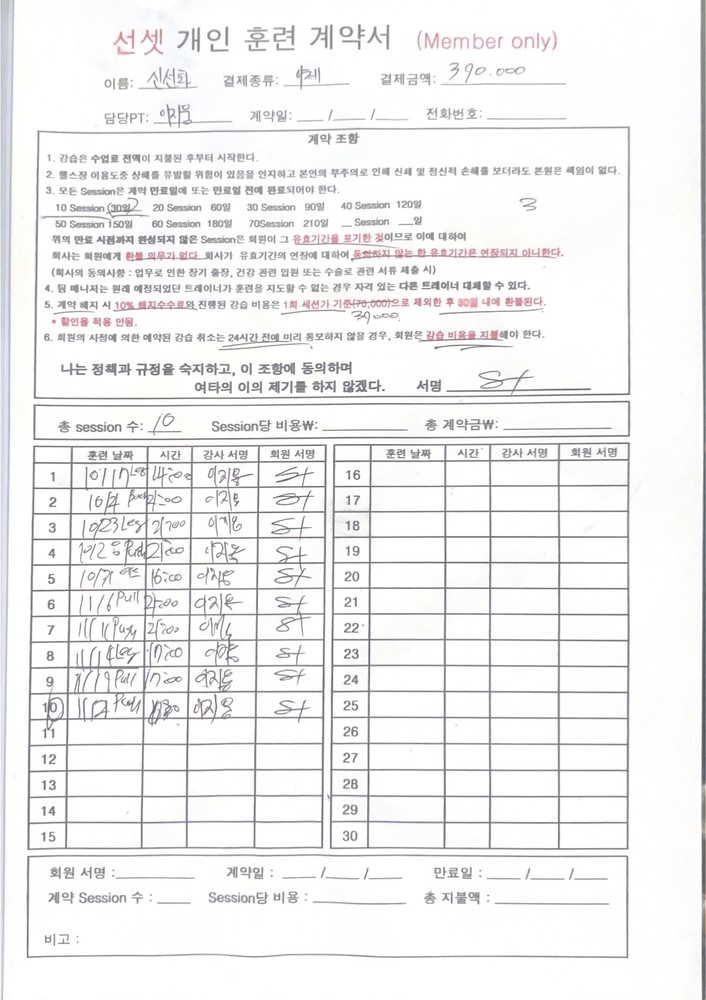 선셋 개인 훈련 계약서 (Member only)
이름: 신선화 결제종류: 이체 결제금액: 390.000
담당PT: 이지웅 계약일: / / 전화번호:
계약 조항
1. 강습은 수업료 전액이 지불된 후부터 시작한다.
2. 헬스장 이용도중 상해를 유발할 위험이 있음을 인지하고 본인의 부주의로 인해 신체 및 정신적 손해를 보더라도 본원은 책임이 없다.
3. 모든 Session은 계약 만료일에 또는 만료일 전에 완료되어야 한다.
10 Session (30일) 20 Session 60일 30 Session 90일 40 Session 120일 3
50 Session 150일 60 Session 180일 70Session 210일 __ Session __일
위의 만료 시점까지 완성되지 않은 Session은 회원이 그 유효기간을 포기한 것이므로 이에 대하여
회사는 회원에게 환불 의무가 없다 회사가 유효기간의 연장에 대하여 동의하지 않는 한 유효기간은 연장되지 아니한다.
(회사의 동의사항 : 업무로 인한 장기 출장, 건강 관련 입원 또는 수술로 관련 서류 제출 시)
4. 팀 메니저는 원래 예정되었던 트레이너가 훈련을 지도할 수 없는 경우 자격 있는 다른 트레이너 대체할 수 있다.
5. 계약 해지 시 10% 해지수수료와 진행된 강습 비용은 1회 세션가 기준(70,000)으로 제외한 후 30일 내에 환불된다.
* 할인율 적용 안됨. 39,000.
6. 회원의 사정에 의한 예약된 강습 취소는 24시간 전에 미리 통보하지 않을 경우, 회원은 강습 비용을 지불해야 한다.
나는 정책과 규정을 숙지하고, 이 조항에 동의하며
여타의 이의 제기를 하지 않겠다. 서명
총 session 수: 10 Session당 비용₩: 총 계약금₩:
훈련 날짜 시간 강사 서명 회원 서명 훈련 날짜 시간 강사 서명 회원 서명
1 10/17 Leg 14:00 이지웅 16
2 21:00 이지웅 17
3 10/23 Leg 21:00 이지웅 18
4 21:00 이지웅 19
5 10/31 16:00 이지웅 20
6 11/6 Pull 21:00 이지웅 21
7 11/11 Push 21:00 22
8 11/14 Leg 17:00 이지웅 23
9 11/19 Pull 17:00 이지웅 24
10 이지웅 25
11 26
12 27
13 28
14 29
15 30
회원 서명 : 계약일 : / / 만료일 : / /
계약 Session 수 : Session당 비용 : 총 지불액 :
비고 :